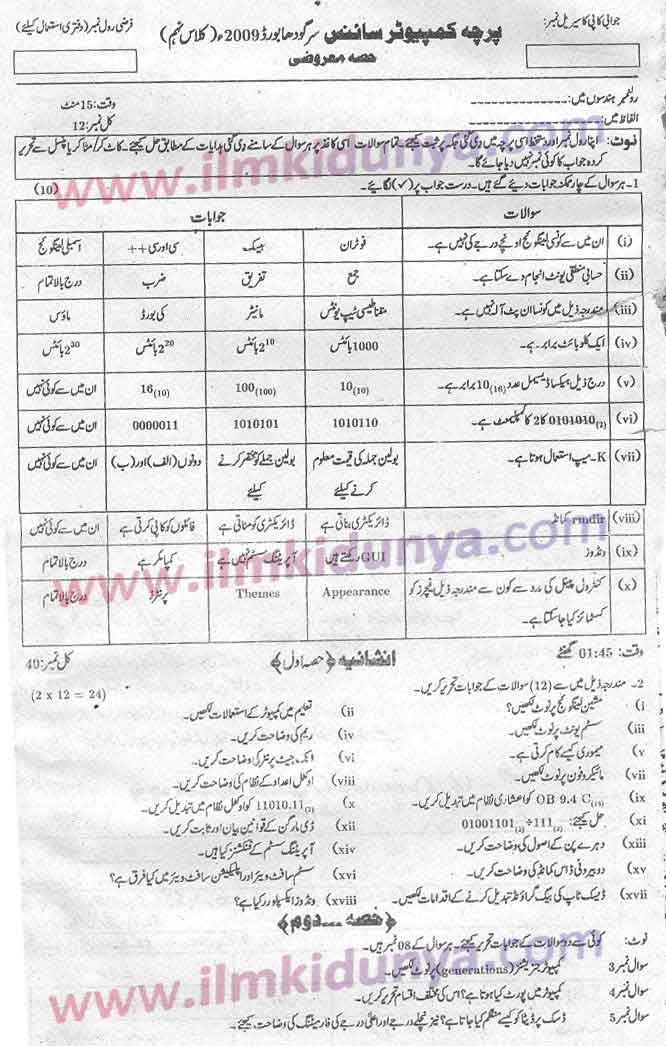 جوابی کاپی کا سیریل نمبر:
پرچہ کمپیوٹر سائنس سرگودھا بورڈ 2009ء (کلاس نہم)
فرضی رول نمبر (دفتری استعمال کیلئے)
حصہ معروضی
رولنمبر ہندسوں میں: ---------------
وقت: 15 منٹ
الفاظ میں: ---------------
کل نمبر: 12
نوٹ: اپنا رول نمبر اور دستخط اسی پرچہ میں دی گئی جگہ پر ثبت کیجئے۔ تمام سوالات اسی کاغذ پر ہر سوال کے سامنے دی گئی ہدایات کے مطابق حل کیجئے۔ کاٹ کر/مٹا کر یا پنسل سے تحریر
کردہ جواب کا کوئی نمبر نہیں دیا جائے گا۔
1- ہر سوال کے چار ممکنہ جوابات دیئے گئے ہیں۔ درست جواب پر (✓) لگائیے۔ (10)
سوالات جوابات
(i) ان میں سے کونسی لینگوئج اونچے درجے کی نہیں ہے۔ فوٹران بیسک سی اور سی ++ اسمبلی لینگوئج
(ii) حسابی منطقی یونٹ انجام دے سکتا ہے۔ جمع تفریق ضرب درج بالا تمام
(iii) مندرجہ ذیل میں کونسا ان پٹ آلہ نہیں ہے۔ مقناطیسی ٹیپ یونٹس مانیٹر کی بورڈ ماؤس
(iv) ایک کلو بائٹ برابر ہے۔ 1000 بائٹس 2¹⁰ بائٹس 2²⁰ بائٹس 2³⁰ بائٹس
(v) درج ذیل ہیکسا ڈیسیمل عدد 10₍₁₆₎ برابر ہے۔ 10₍₁₀₎ 100₍₁₀₀₎ 16₍₁₀₎ ان میں سے کوئی نہیں
(vi) 0101010₍₂₎ کا 2 کمپلیمنٹ ہے۔ 1010110 1010101 0000011 ان میں سے کوئی نہیں
(vii) K-میپ استعمال ہوتا ہے۔ بولین جملہ کی قیمت معلوم کرنے کیلئے بولین جملے کو مختصر کرنے کیلئے دونوں (الف) اور (ب) ان میں سے کوئی نہیں
(viii) rmdir کمانڈ ڈائریکٹری بناتی ہے ڈائریکٹری کو مٹاتی ہے فائلوں کو کاپی کرتی ہے ان میں سے کوئی نہیں
(ix) ونڈوز GUI رکھتے ہیں آپریٹنگ سسٹم نہیں ہے کمپائلر ہے درج بالا تمام
(x) کنٹرول پینل کی مدد سے کون سے مندرجہ ذیل فیچرز کو کسٹمائز کیا جا سکتا ہے۔ Appearance Themes پرنٹرز درج بالا تمام
وقت: 01:45 گھنٹے
انشائیہ (حصہ اول)
کل نمبر: 40
2- مندرجہ ذیل میں سے (12) سوالات کے جوابات تحریر کریں۔ (2 x 12 = 24)
i) مشین لینگوئج پر نوٹ لکھیں؟ ii) تعلیم میں کمپیوٹر کے استعمالات لکھیں۔
iii) سسٹم یونٹ پر نوٹ لکھیں۔ iv) ریم کی وضاحت کریں۔
v) میموری کیسے کام کرتی ہے۔ vi) انک جیٹ پرنٹر کی وضاحت کریں۔
vii) مائیکروفون پر نوٹ لکھیں۔ viii) اوکٹل اعداد کے نظام کی وضاحت کریں۔
ix) OB 9.4 C₍₁₆₎ کو اعشاری نظام میں تبدیل کریں۔ x) 11010.11₍₂₎ کو اوکٹل نظام میں تبدیل کریں۔
xi) حل کیجئے: 01001101₍₂₎÷111₍₂₎ xii) ڈی مارگن کے قوانین بیان اور ثابت کریں۔
xiii) دہرے پن کے اصول کی وضاحت کریں۔ xiv) آپریٹنگ سسٹم کے فنکشنز کیا ہیں۔
xv) دو بیرونی ڈاس کمانڈ کی وضاحت کریں۔ xvi) سسٹم سافٹ ویئر اور اپلیکیشن سافٹ ویئر میں کیا فرق ہے؟
xvii) ڈیسک ٹاپ کی بیک گراؤنڈ تبدیل کرنے کے اقدامات لکھیں۔ xviii) ونڈوز ایکسپلورر کیا ہے؟
(حصہ ۔۔۔ دوم)
نوٹ: کوئی سے دو سوالات کے جوابات تحریر کیجئے۔ ہر سوال کے 08 نمبر ہیں۔
سوال نمبر 3 کمپیوٹر جنریشنز (generations) پر نوٹ لکھیں۔
سوال نمبر 4 کمپیوٹر میں پورٹ کیا ہوتا ہے؟ اس کی مختلف اقسام تحریر کریں۔
سوال نمبر 5 ڈسک پر ڈیٹا کو کیسے منظم کیا جاتا ہے؟ نیز نچلے درجے اور اعلیٰ درجے کی فارمیٹنگ کی وضاحت کیجئے۔
www.ilmkidunya.com
www.ilmkidunya.com
www.ilmkidunya.com